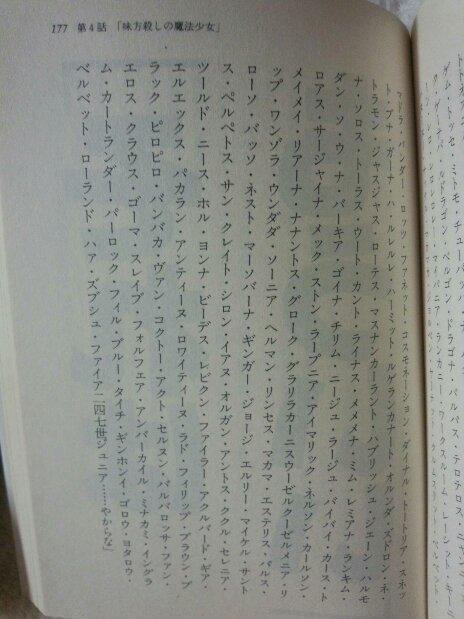 177 第4話 「味方殺しの魔法少女」
マドラ・バンダー・ロッツ・ファネット・コスモネーション・ダイナル・トートリア・スネッ
ト・プナ・ガーナ・ハ・ルレルレ・ハーミット・ルゲランカナート・オルンダ・ズドロン・ネ・
トラモン・ジャスジャス・ローテス・マスナンカーラント・ハブリッシュ・ジェーン・ハルモ
ナ・ソロス・トーラス・ウート・カント・ライナス・メメメナ・ミム・レミアナ・ランキム・
ダン・ソ・ウ・ナ・バーキア・ゴイナ・チリム・ニージュ・ラージュ・バイバイ・カース・ト
ロアス・サージャイナ・メック・ストン・ラープニア・アイマリック・ネルソン・カールソン・
メイメイ・リアーナ・ナナントス・グローク・グラリラカーニスウーゼルクーゼルメニア・リ
ップ・ワンゾラ・ウンダダ・ソーニア・ヘルマン・リンセス・マカマ・エステリス・バルス・
ローソ・バッソ・ネスト・マーソバーナ・ギンガー・ジョージ・エルケー・マイケル・サント
ス・ペルペトス・サン・クレイト・シロン・イアヌ・オルガン・アントス・ククル・セレニア・
ツールド・ニース・ホル・ヨンナ・ビーデス・レビクン・ファイラー・アクルバード・ギア・
エルエックス・パカラン・アンティーヌ・ロワイティーヌ・ラド・フィリップ・ブラウン・プ
ラック・ピロピロ・バンバカ・ヴァン・コクトー・アクト・セルヌン・バルバロッサ・ファン・
エロス・クラウス・ゴーマ・スレイブ・フォルフェア・アンバーカイル・ミナカミ・イングラ
ム・カートランダー・バーロック・フィル・ブルー・タイチ・ギンホンイ・ゴロウ・ヨタロウ・
ベルベット・ローランド・ハァ・ズブシュ・ファイア二四七世ジュニア……やからな」